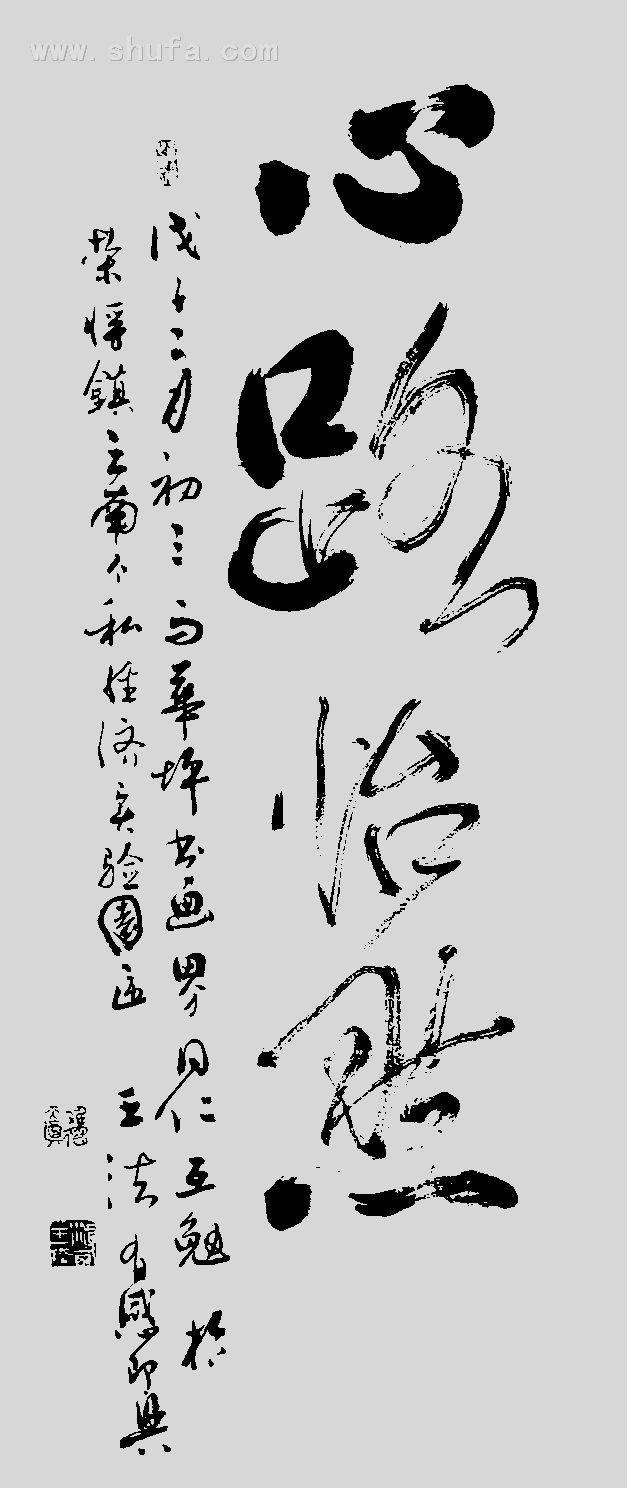 www.shufa.com
心路怡然
戊子二月初三与華坪书画界同仁互勉 于
荣将鎮云南个私经济实验園区 王法有感即興